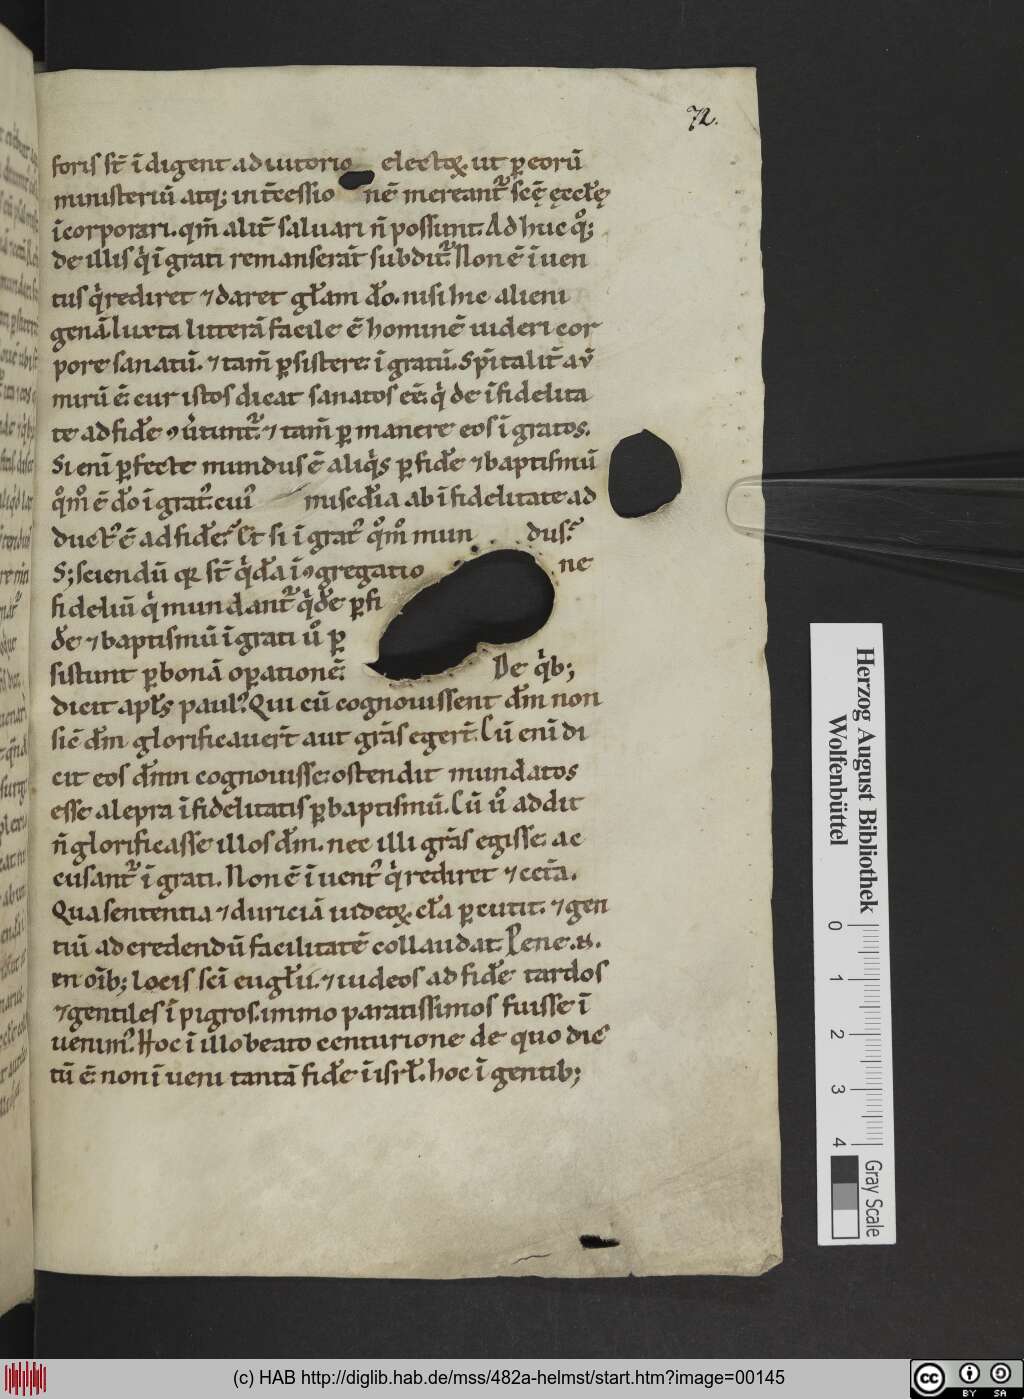 72.
foris st̄ īdigent adiutorio electoꝝ. ut ꝑ eorū
ministeriū atq; int̄cessionē mereant᷑ scę̄ ęccłę
īcorporari. qm̄ alit̄ saluari n̄ possunt. Ad huc qͦ;
de illis qͥ īgrati remanserāt subdit᷑ Non ē īuen
tus qͥ rediret ⁊ daret gło̅am do̅. nisi hic alieni
genā. Iuxta litterā facile ē hominē uideri cor
pore sanatū. ⁊ tam̄ ꝑsistere īgratū. Spi̅talit̄ aū
mirū ē. cur istos dicat sanatos eē. qͥ de īfidelita
te ad fidē ꝯu̅tunt᷑. ⁊ tam̄ ꝑmanere eos īgratos.
Si eni̅ ꝑfecte mundus ē aliqͥs ꝑ fidē ⁊ baptismū
qͦmͦ ē do̅ īgrat᷒. cui᷒ misedi̅a ab īfidelitate ad
duct᷒ ē ad fidē? Et si īgrat᷒ qͦmͦ mundus?
S; sciendū qꝛ st̄ qͥda̅ ī ꝯgregatione
fideliū qͥ mundant᷑ qͥde̅ ꝑ fi
dē ⁊ baptismū īgrati uͦ ꝑ
sistunt ꝑ bonā oꝑationē. De qͥb;
dicit apłs paul᷒. Qui cū cognouissent dm̅ non
sic̄ dm̅ glorificauer̄t aut gra̅s eger̄t. Cū enī di
cit eos dm̅ cognouisse. ostendit mundatos
esse a lepra īfidelitatis ꝑ baptismū. Cū uͦ addit
n̄ glorificasse illos dm̅. nec illi gra̅s egisse. ac
cusant᷑ īgrati. Non ē īuent᷒ qͥ rediret ⁊ cet̄a.
Qua sententia ⁊ duriciā iudeoꝝ. cła ꝑcutit. ⁊ gen
tiū ad credendū facilitatē collaudat. Pene. n̄.
en oi̅b; locis sci̅ eugłii. ⁊ iudeos ad fidē tardos
⁊ gentiles īpigros. immo paratissimos fuisse ī
uenim᷒. Hoc ī illo beato centurione de quo dic
tū ē. non īueni tantā fidē ī isrł. hoc ī gentib;
Herzog August Bibliothek
Wolfenbüttel
0 1 2 3 4
Gray Scale
(c) HAB http://diglib.hab.de/mss/482a-helmst/start.htm?image=00145
cc BY SA